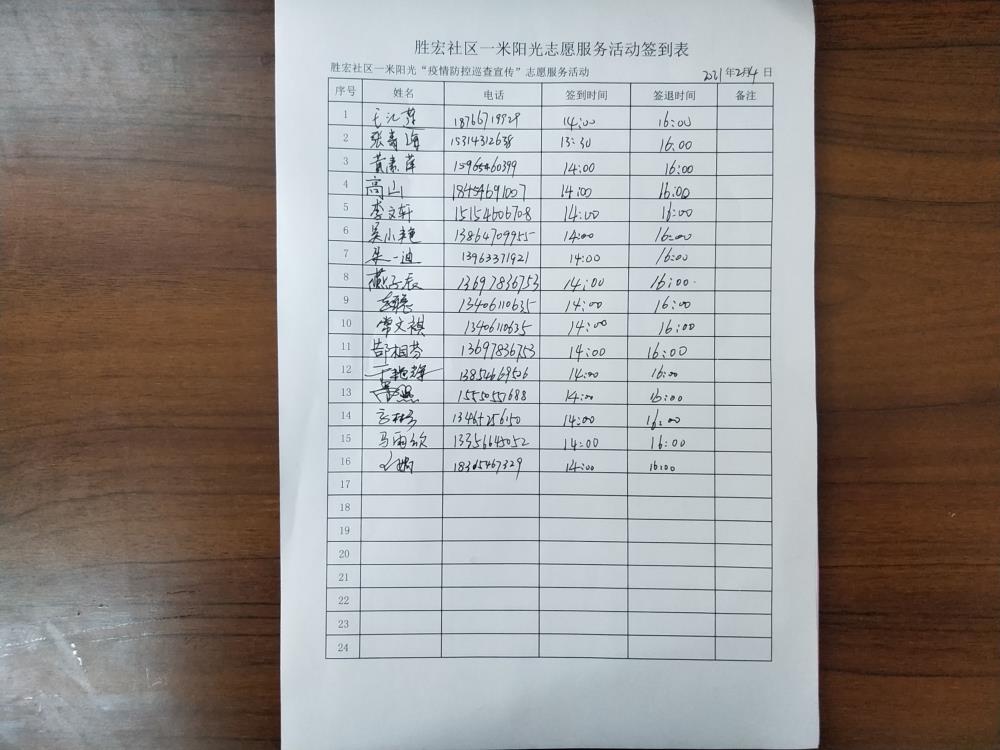 胜宏社区一米阳光志愿服务活动签到表
胜宏社区一米阳光“疫情防控巡查宣传”志愿服务活动 2021年2月4日
序号 姓名 电话 签到时间 签退时间 备注
1 18766719929 14:00 16:00
2 张春海 15314312638 13:30 16:00
3 黄素萍 15965460399 14:00 16:00
4 高山 18454691007 14:00 16:00
5 李文轩 15154606708 14:00 16:00
6 吴小艳 13864709955 14:00 16:00
7 朱一迪 13963371921 14:00 16:00
8 13697836753 14:00 16:00
9 13406110635 14:00 16:00
10 常文祺 13406110635 14:00 16:00
11 郜相芬 13697836753 14:00 16:00
12 13854669526 14:00 16:00
13 15550557688 14:00 16:00
14 14:00 16:00
15 马雨欣 13356645052 14:00 16:00
16 14:00 16:00
17
18
19
20
21
22
23
24